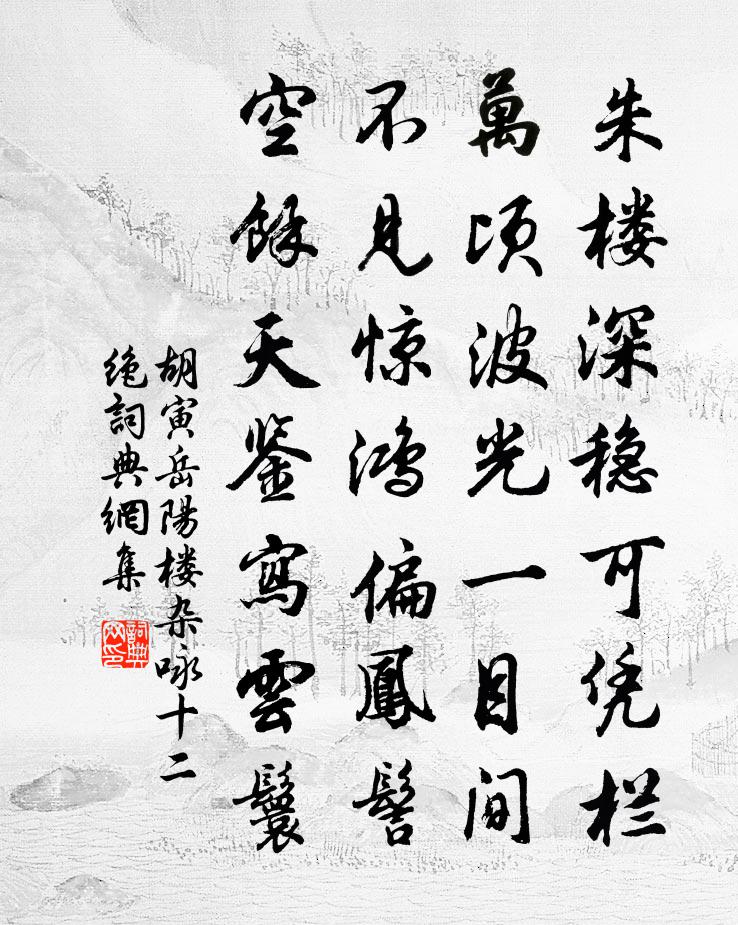 朱楼深稳可凭栏
萬顷波光一目间
不见惊鸿偏鳳髻
空餘天鉴寫雲鬟
胡寅岳陽楼杂咏十二
绝詞典網集
詞典
网印